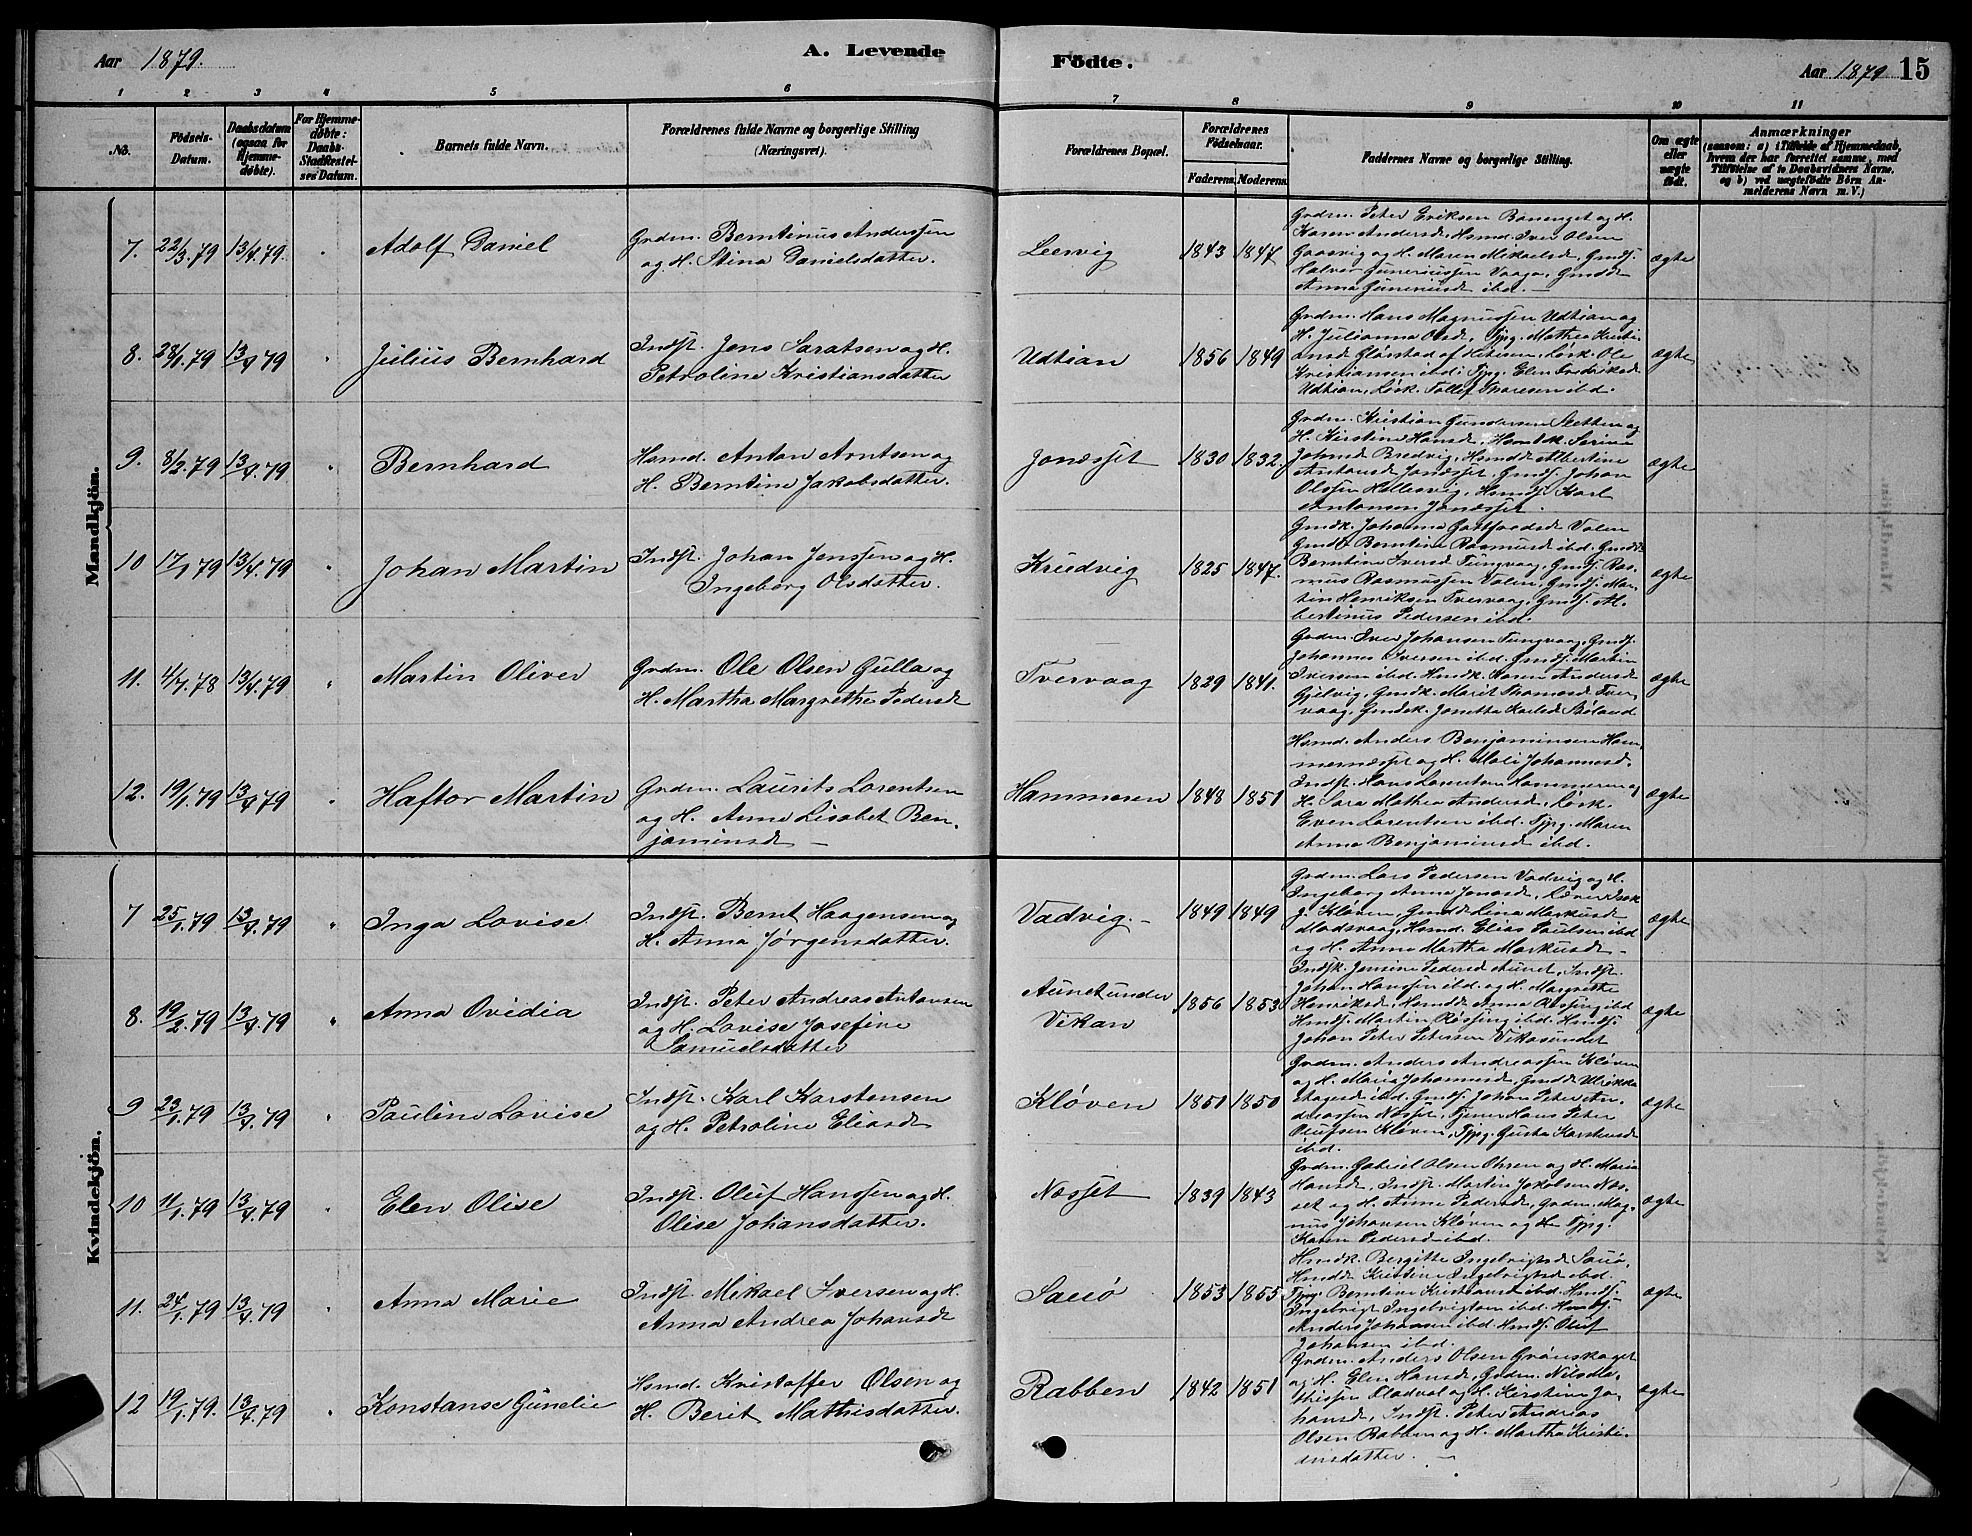 Aar 1879.
A. Levende
Födte.
Aar 1879
15
1 2 3 4 5 6
7 8 9 10 11
No.
Födsels-
Datum.
Daabsdatum
(ogsaa for
Hjemme-
döbte).
For Hjemme-
döbte:
Daabs-
Stadfæstel-
ses Datum.
Barnets fulde Navn.
Forældrenes fulde Navne og borgerlige Stilling
(Næringsvei).
Forældrenes Bopæl.
Forældrenes
Födselsaar.
Faderens. Moderens.
Faddernes Navne og borgerlige Stilling.
Om ægte
eller
uægte
født.
Anmærkninger
(saasom: a) i Tilfælde af Hjemmedaab,
hvem der har forrettet samme, med
Tilføielse af to Daabsvidners Navne,
og b) ved uægtefödte Börn An-
melderens Navn m. V.)
Mandkjön.
7. 22/3.79 13/4.79. Adolf Daniel
Grdm. Berntinus Anderssen
og H. Stina Danielsdatter.
Leervig 1843 1847
Grdm. Peter Eriksen og H.
Karen Andersd, Hsmd. Iver Olsen
og H. Maren Mikaelsd, Gmdsf.
Halvor Vaagø, Gmdd
Anna ibd.
ægte
8. 28/1.79 13/4 79 Julius Bernhard
Indst. Jens og H.
Petroline Kristiansdatter
Udtian 1856 1849
Grdm. Hans Magnussen Udtian og
H. Julianna Olsd, Tjpg. Mathea Kristi-
ansd af Hitteren, Løsk. Ole
Kristiansen ibd. Tjpg. Elen Fredriksd
Udtian, Løsk. Tollef Thoresen ibd.
ægte
9. 8/2.79 13/4 79 Bernhard
Hsmd. Anton Arntsen og
H. Berntine Jakobsdatter.
Jonæsset 1830 1832
Grdm. Kristian Gundersen Sletten og
H. Kirstine Hansd, Serine
Johnsd Bredvig, Hsmdd Albertine
Antonsd Jonæsset, Gmdsf. Johan
Olssen Hellesvig, Hsmdsf. Karl
Antonsen Jonæsset.
ægte
10 17/1 79 13/4.79 Johan Martin
Indst. Johan Jenssen og H.
Ingeborg Olsdatter.
Knudvig 1825 1847.
Gmdk. Johanna Valen
Gmdd Berntine Rasmusd ibd. Gmdd
Berntine Iversd Tungvaag, Gmdsf. Ras-
mus Rasmussen Valen, Gmdsf. Mar-
tin Henriksen Tvervaag, Gmdsf. Al-
bertinus Pedersen ibd.
ægte
11. 4/7.78 13/4.79 Martin Oliver
Grdm. Ole Olsen Gulla og
H. Martha Margrethe Pedersd
Tvervaag 1829 1841.
Grdm. Iver Johansen Tungvaag, Gmdsf.
Johannes Iversen ibd. Gmdsf. Martin
Iversen ibd. Hmdk. Karen Andersd
Gjelvig, Gmdk. Marit Thomasd Tver-
vaag, Gmdsk. Jonetta Karlsd
ægte
12. 19/1.79 13/4 79 Haftor Martin
Grdm. Laurits Lorentsen
og H. Anne Lisabet Ben-
jaminsd
Hammeren 1848 1851
Hsmd. Anders Benjaminsen Ham-
og H. Mali Johannesd.
Indst. Hans Lorentsen Hammeren og
H. Sara Mathea Andersd, Løsk.
Even Lorentsen ibd. Tjpg. Maren
Anna Benjaminsd ibd.
ægte
Kvindekjön.
7 25/1.79 13/4.79 Inga Lovise
Indst. Bernt Haagensen og
H. Anna Jørgensdatter.
Vadvig. 1849 1849
Grdm. Lars Pedersen Vadvig og H.
Ingeborg Anna Jonasd, Lærer
Kløven, Gmdd Lina Markusd
Madsvaag, Hsmd. Elias Paulsen ibd
og H. Anne Martha Markusd
ægte
8. 19/2.79 13/4.79 Anna Ovidia
Indst. Peter Andreas Antonsen
og H. Lovise Josefine
Samuelsdatter
Aunet under
Vikan 1856 1853
Indsk. Jensine Pedersd Aunet, Indst.
Johan Hanssen ibd. og H. Margrethe
Henriksd, Hsmdd Anna Røssing ibd
Hmdsf. Martin Røssing ibd. Hmdsf.
Johan Peter Vikasundet
ægte
9 23/1.79 13/4.79 Pauline Lovise
Indst. Karl Karstensen
og H. Petroline Eliasd
Kløven 1851 1850
Grdm. Anders Andreassen Kløven
og H. Maria Johannesd, Gmdd Ulrikka
ibd. Gmdsf. Johan Peter An-
dreassen Næsset, Tjener Hans Peter
Olufsen Kløven, Tjpg. Gusta Karstensd
ibd.
ægte
10 11/1.79 13/4.79 Elen Olise
Indst. Oluf Hanssen og H.
Olise Johansdatter.
Næsset 1839 1843
Grdm. Gabriel Olsen og H. Maria
Hansd, Indst. Martin Jakobsen Næs-
set og H. Anne Pedersd, Grdm. Mag-
nus Johansen Kløven og Tjpg.
Karen Pedersd ibd.
ægte
11. 24/1.79 13/4.79 Anna Marie
Indst. Mikael Iversen og H.
Anna Andrea Johansd
Sauø 1853 1855
Hmdk. Bergitte Ingebrigtsd Sauø,
Hmdd Kristine Ingebrigtsd ibd.
Tjpg. Berntine Kristiansd ibd. Hmdsf.
Ingebrigt Ingebrigtsen ibd. Hmdsf.
Anders Johansen ibd. Hmdsf. Oluf
Johansen ibd.
ægte
12 19/1.79. 13/4.79 Konstanse Gunelie
Hsmd. Kristoffer Olsen og
H. Berit Mathisdatter.
Rabben 1842 1851
Grdm. Anders Olsen Grønskaget
og H. Elen Hansd, Grdm. Nils Ma-
thissen og H. Kirstine Jo-
hansd, Indst. Peter Andreas
Olsen Rabben og H. Martha Kristi-
ansdatter.
ægte